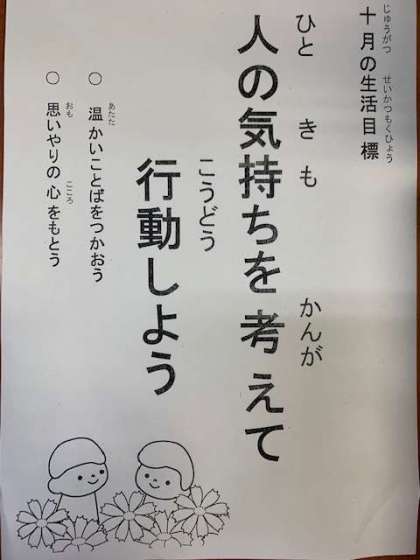 十月の生活目標
じゅうがつ せいかつもくひょう
人の気持ちを考えて
ひと きも かんが
行動しよう
こうどう
○ 温かいことばをつかおう
あたた
○ 思いやりの心をもとう
おも こころ